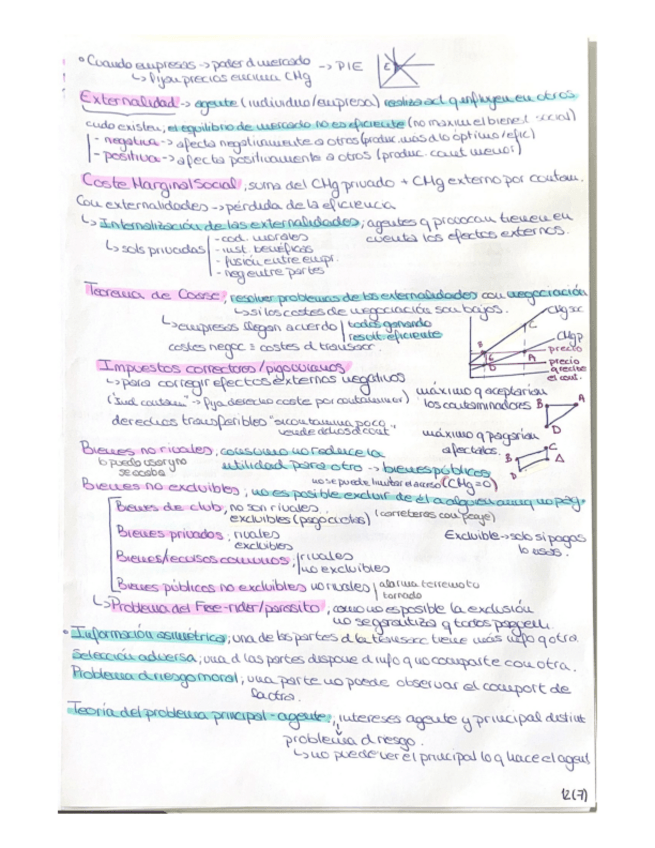 • Cuando empresas → poder d mercado → PIE
↳ fijan precios encima CMg
Externalidad → agente (individuo/empresa) realiza act q influyen en otros
cudo existen, el equilibrio de mercado no es eficiente (no maxim el bienest social)
- negativa → afecta negativamente a otros (produc. más d lo óptimo/efic)
- positiva → afecta positivamente a otros (produc. cant menor)
Coste Marginal Social, suma del CMg privado + CMg externo por contam.
Con externalidades → pérdida de la eficiencia
↳ Internalización de las externalidades, agentes q provocan tienen en
cuenta los efectos externos.
↳ sols privadas
- cod. morales
- inst. benéficas
- fusión entre empr.
- neg entre partes
Teorema de Coase, resolver problemas de las externalidades con negociación
↳ si los costes de negociación son bajos.
↳ empresas llegan acuerdo | todos ganando
result. eficiente
costes negoc = costes d transacc.
CMg sc
CMg p
precio
precio
q recibe
el cont.
Impuestos correctores/pigouvianos
↳ para corregir efectos externos negativos
derechos transferibles "si contamina poco
máximo q aceptarían
los contaminadores
B A
D
máximo q pagarían
afectados.
B C
D A
Bienes no rivales, consumo no reduce la
utilidad para otro → bienes públicos
lo puedo usar y no
se acaba
no se puede limitar el acceso (CMg = 0)
Bienes no excluibles, no es posible excluir de él a alguien aunq no pag.
Bienes de club, no son rivales
excluibles (pago cuotas) (carreteras con peaje)
Bienes privados, rivales
excluibles
Excluible → solo si pagas
lo usas.
Bienes/recursos comunes, rivales
no excluibles
Bienes públicos no excluibles no rivales | alarma terremoto
tornado
↳ Problema del Free-rider/parásito, como no es posible la exclusión
no se garantiza q todos paguen.
• Información asimétrica, una de las partes d la transacc tiene más info q otra.
Selección adversa, una d las partes dispone d info q no comparte con otra.
Problema d riesgo moral, una parte no puede observar el comport de
la otra.
Teoría del problema principal-agente, intereses agente y principal distint
problema d riesgo.
↳ no puede ver el principal lo q hace el agent
12(7)